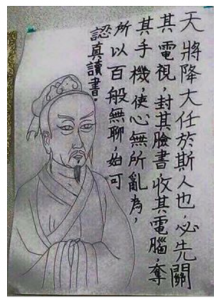 天將降大任於斯人也,必先關
其電視,封其臉書收其電腦,奪
其手機,使心無所亂為,
所以百般無聊,始可
認真讀書.